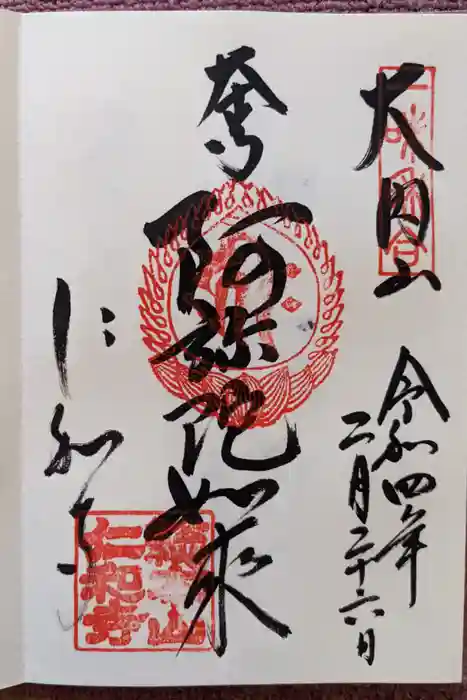 大内山
令和四年
二月二十六日
奉
阿弥陀如来
仁和寺
総本山
仁和寺